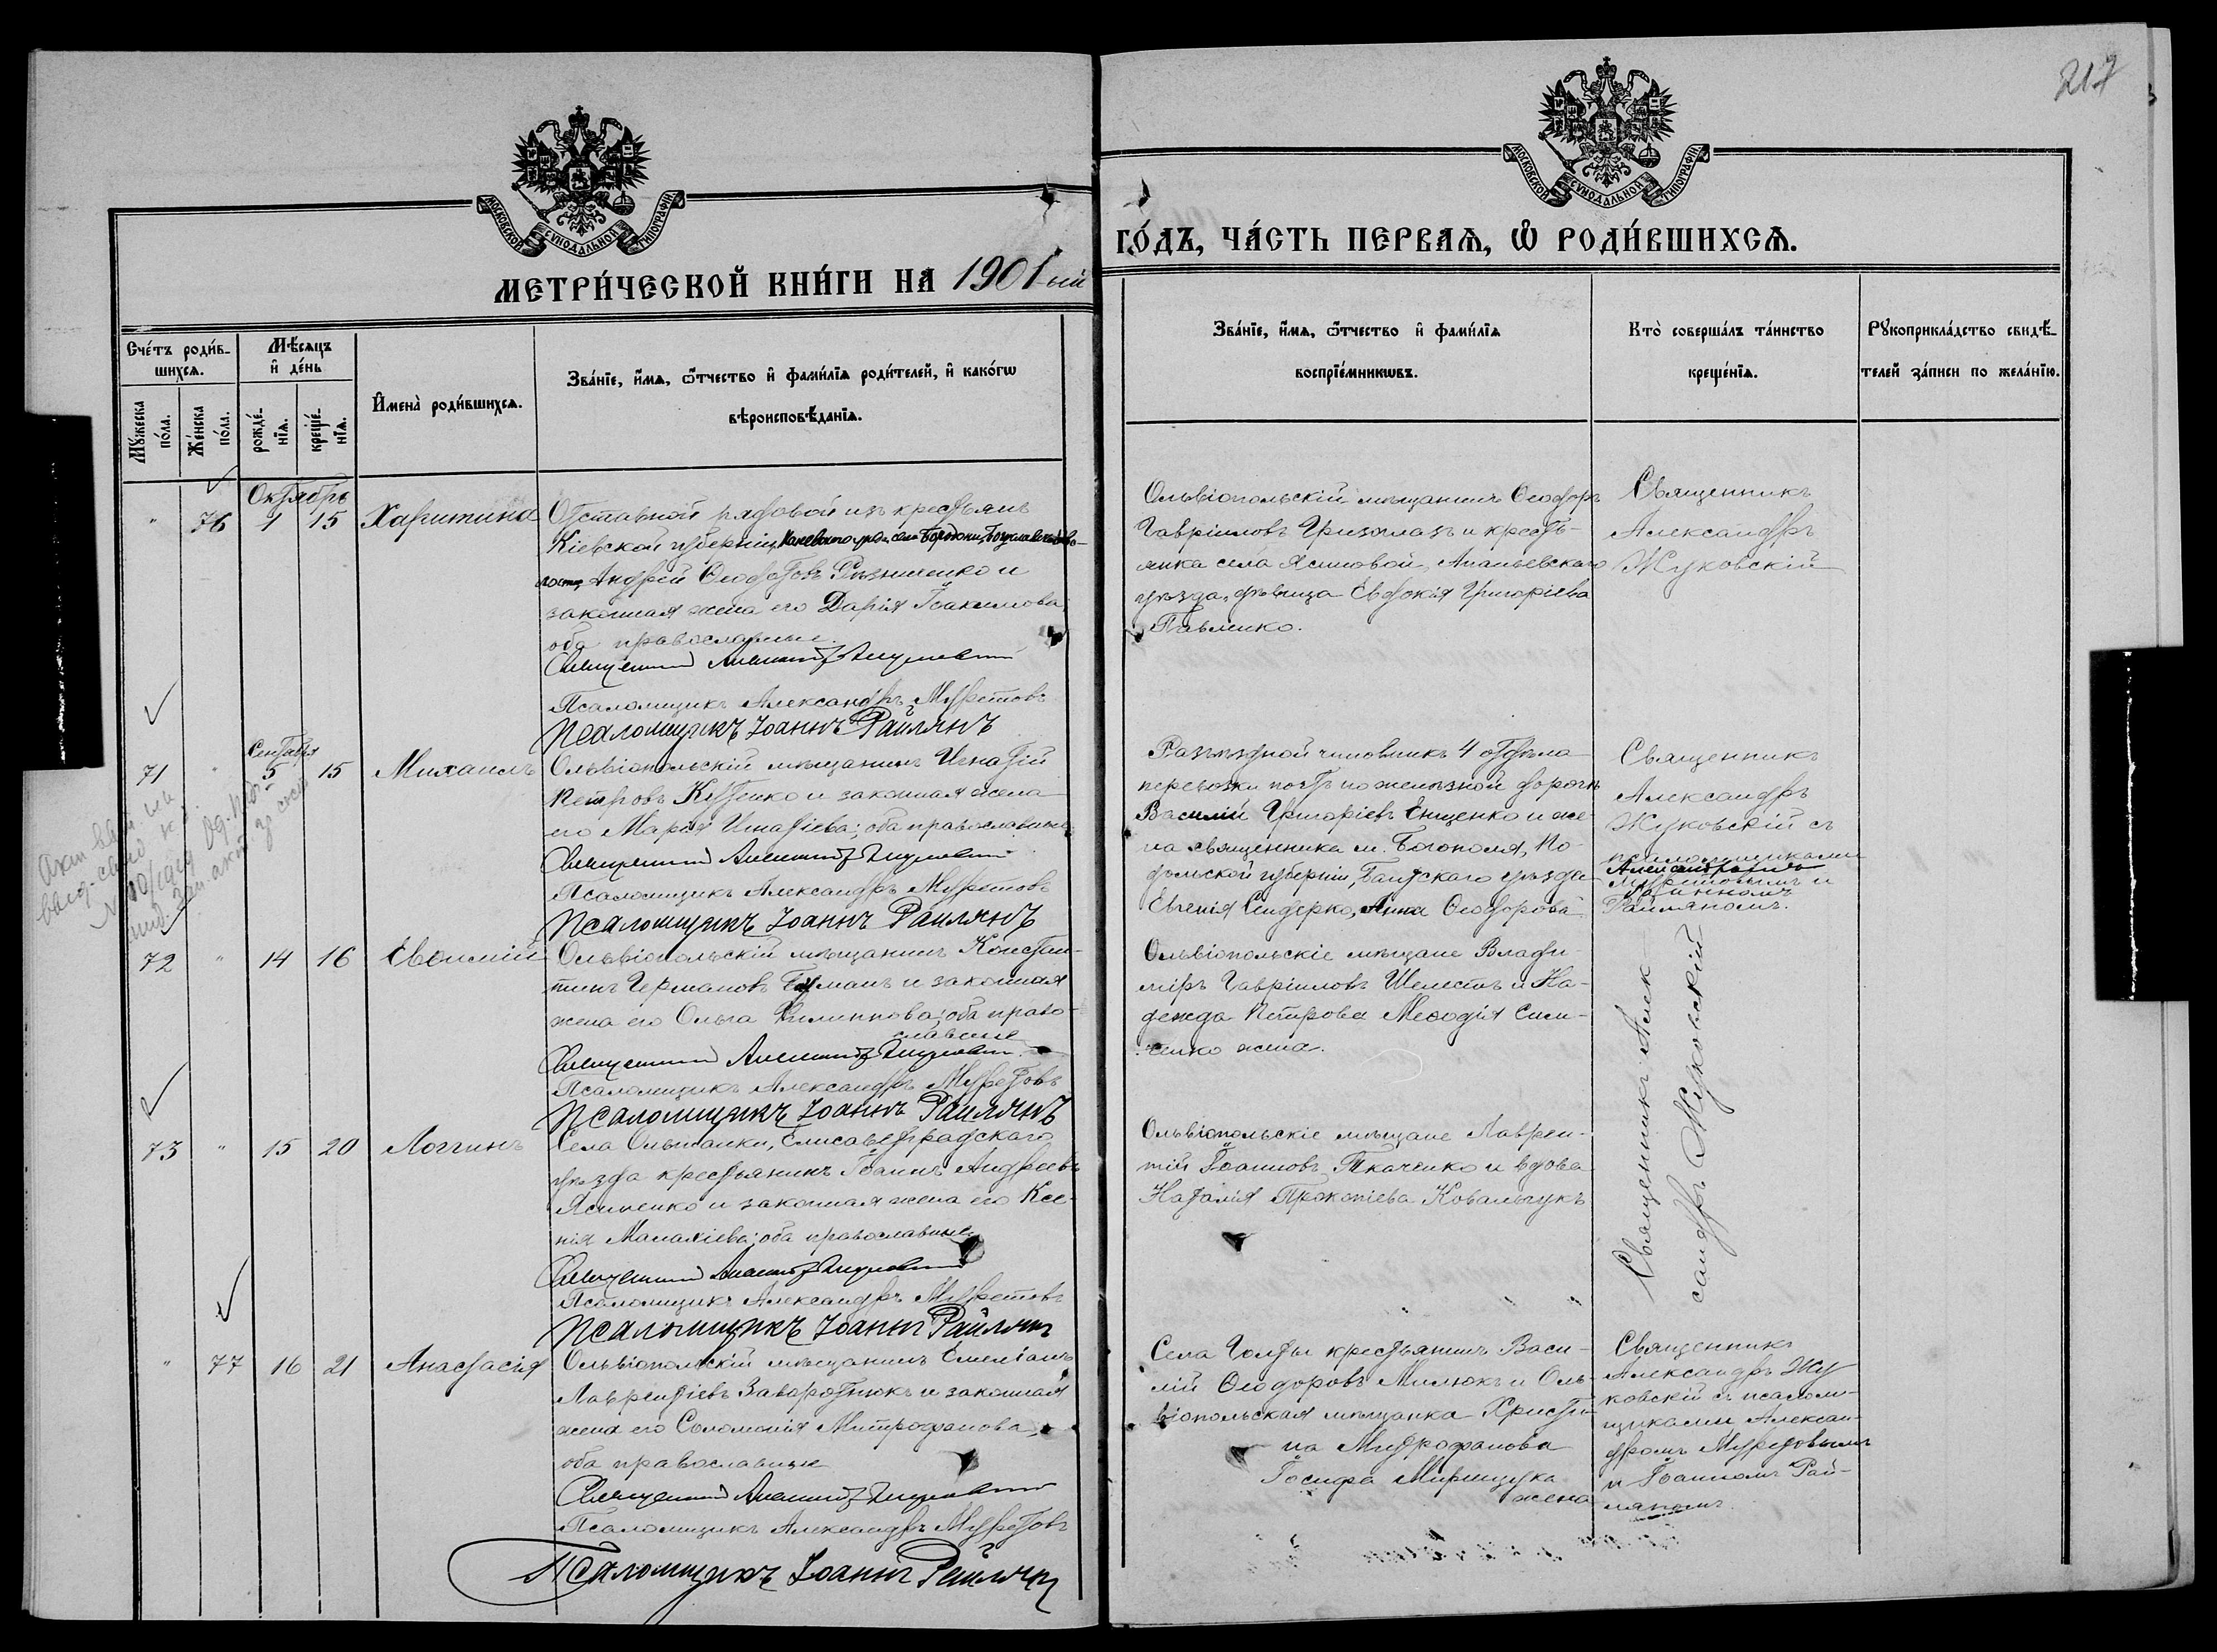 217
МОСКОВСКОЙ СУНОДАЛЬНОЙ ТИПОГРАФІИ.
МОСКОВСКОЙ СУНОДАЛЬНОЙ ТИПОГРАФІИ.
МЕТРИ́ЧЕСКОЙ КНИ́ГИ НА 1901-ый
ГО́ДЪ, ЧА́СТЬ ПЕРВАѦ, Ѽ РОДИ́ВШИХСѦ.
Сче́тъ роди́в-
шихсѧ.
Мꙋ́жеска по́ла.
Же́нска по́ла.
Мѣ́сѧцъ
и҆ де́нь
рожде́-
нїѧ.
креще́-
нїѧ.
И҆мена̀ роди́вшихсѧ.
Зва́нїе, и҆́мѧ, ѻ҆́тчество и҆ фами́лїѧ роди́телей, и҆ како́гѡ
вѣроисповѣ́данїѧ.
Зва́нїе, и҆́мѧ, ѻ҆́тчество и҆ фами́лїѧ
воспрїе́мникѡвъ.
Кто̀ соверша́лъ та́инство
креще́нїѧ.
Рꙋкоприкла́дство свидѣ́-
телей за́писи по жела́нїю.
Октябрь
" 76 1 15 Харитина
Отставной рядовой изъ крестьянъ
Кіевской губерніи,
Андрей Ѳеодотовъ Рѣзниченко и
законная жена его Дарія Іоакимова,
оба православные.
Священникъ Александръ Жуковскій
Псаломщикъ Александръ Муретовъ
Псаломщикъ Іоаннъ Райлянъ
Ольвіопольскій мѣщанинъ Ѳеодоръ
Гавріиловъ Гризоглазъ и кресть-
янка села Ясиновой, Ананьевскаго
уѣзда, дѣвица Евдокія Григоріева
Павленко.
Священникъ
Александръ
Жуковскій
Сентябрь
71 " 5 15 Михаилъ
Ольвіопольскій мѣщанинъ Игнатій
Петровъ Куценко и законная жена
его Марія Игнатіева; оба православные
Священникъ Александръ Жуковскій
Псаломщикъ Александръ Муретовъ
Псаломщикъ Іоаннъ Райлянъ
Разъѣздной чиновникъ 4 отдѣла
перевозки почтъ по желѣзной дорогѣ
Василій Григоріевъ Енценко и же
на священника м. Богополя, По-
дольской губерніи, Балтскаго уѣзда
Евгенія Сендерко, Анна Ѳеодорова
Священникъ
Александръ
Жуковскій съ
псаломщиками
Александромъ
Муретовымъ и
Іоанномъ
Райляномъ.
72 " 14 16 Евѳимій
Ольвіопольскій мѣщанинъ Констан-
тинъ Германовъ Буманъ и законная
жена его Ольга Филиппова; оба право-
славные
Священникъ Александръ Жуковскій
Псаломщикъ Александръ Муретовъ
Псаломщикъ Іоаннъ Райлянъ
Ольвіопольскіе мѣщане Влади-
міръ Гавріиловъ Шелестъ и На-
дежда Петрова Меѳодія Сини-
ченко жена.
Священникъ Алек-
сандръ Жуковскій
73 " 15 20 Логгинъ
Села Ольшанки, Елисаветградскаго
уѣзда крестьянинъ Іоаннъ Андреевъ
Ясиненко и законная жена его Ксе-
нія Малахіева; оба православные
Священникъ Александръ Жуковскій
Псаломщикъ Александръ Муретовъ
Псаломщикъ Іоаннъ Райлянъ
Ольвіопольскіе мѣщане Лаврен-
тій Іоанновъ Ткаченко и вдова
Наталія Прокопіева Ковальчукъ
" 77 16 21 Анастасія
Ольвіопольскій мѣщанинъ Емеліанъ
Лаврентіевъ Заваротнюкъ и законная
жена его Соломонія Митрофанова,
оба православные
Священникъ Александръ Жуковскій
Псаломщикъ Александръ Муретовъ
Псаломщикъ Іоаннъ Райлянъ
Села Голты крестьянинъ Васи-
лій Ѳеодоровъ Милюкъ и Оль-
віопольская мѣщанка Христи-
на Митрофанова
Іосифа Мирищука
жена
Священникъ
Александръ Жу
ковскій съ псалом-
щиками Алексан-
дромъ Муретовымъ
и Іоанномъ Рай-
ляномъ